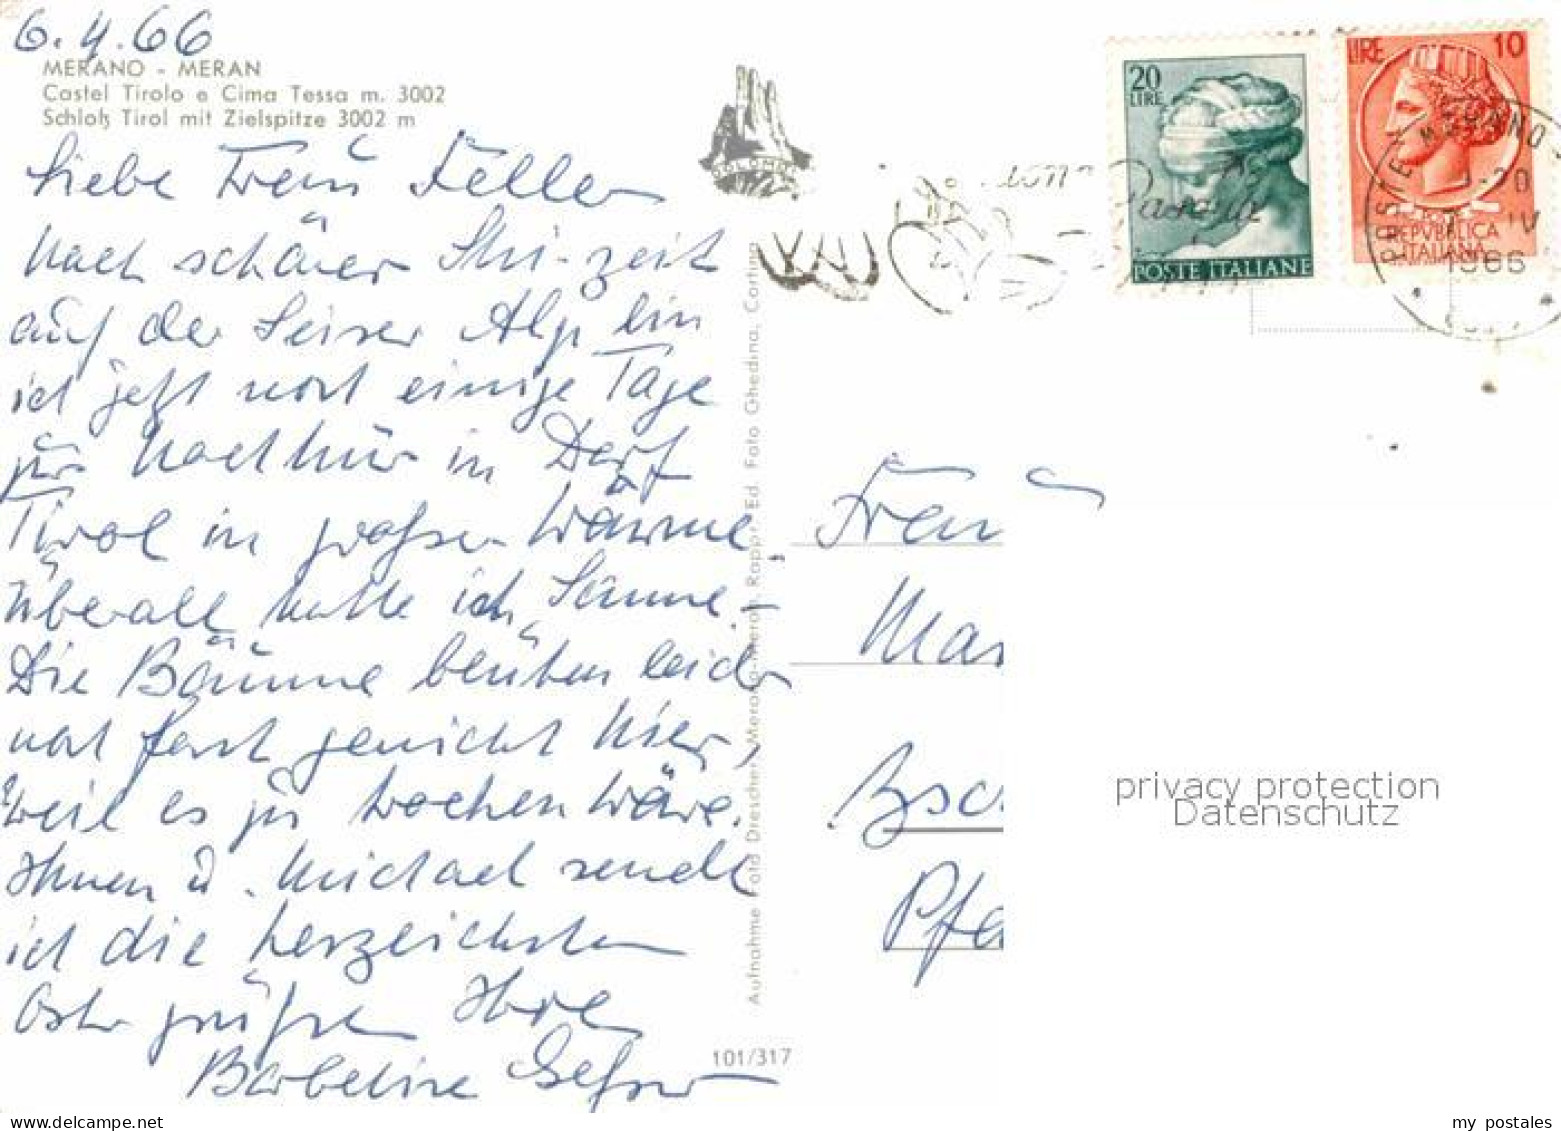 6.4.66
MERANO - MERAN
Castel Tirolo e Cima Tessa m. 3002
Schloß Tirol mit Zielspitze 3002 m
Liebe Frau Feller
Nach schöner Ski-zeit
auf der Seiser Alp bin
ich jetzt noch einige Tage
zur Nachkur in Dorf
Tirol in großer Wärme.
Überall hatte ich Sonne.-
Die Bäume blühen leider
noch fast garnicht hier,
weil es zu trocken wäre.
Ihnen u. Michael sende
ich die herzlichsten
Ostergrüße Ihre
Barbeline
101/317
Aufnahme Foto Drescher, Merano-Meran, Rappr. Ed. Foto Ghedina, Cortina
20
LIRE
POSTE ITALIANE
LIRE 10
REPVBBLICA
ITALIANA
MERANO
1966
Frau
Mar
Zsc
Pfa
privacy protection
Datenschutz
my postales